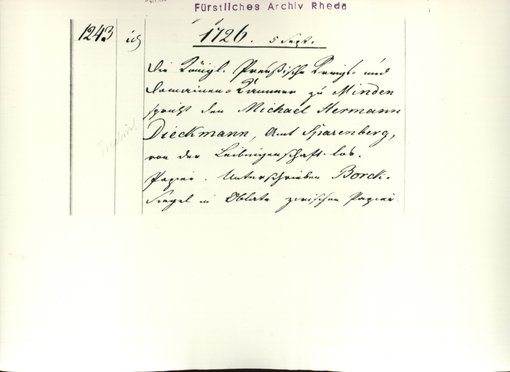 Fürstliches Archiv Rheda
1243
1726. 5 Sept.
Die Königl. Preußische Kriegs- und
Domainen-Kammer zu Minden
spricht den Michael Hermann
Dieckmann, Amt Sparenberg,
von der Leibeigenschaft los.
Papier. Unterschrieben Borck.
Siegel in Oblate zwischen Papier